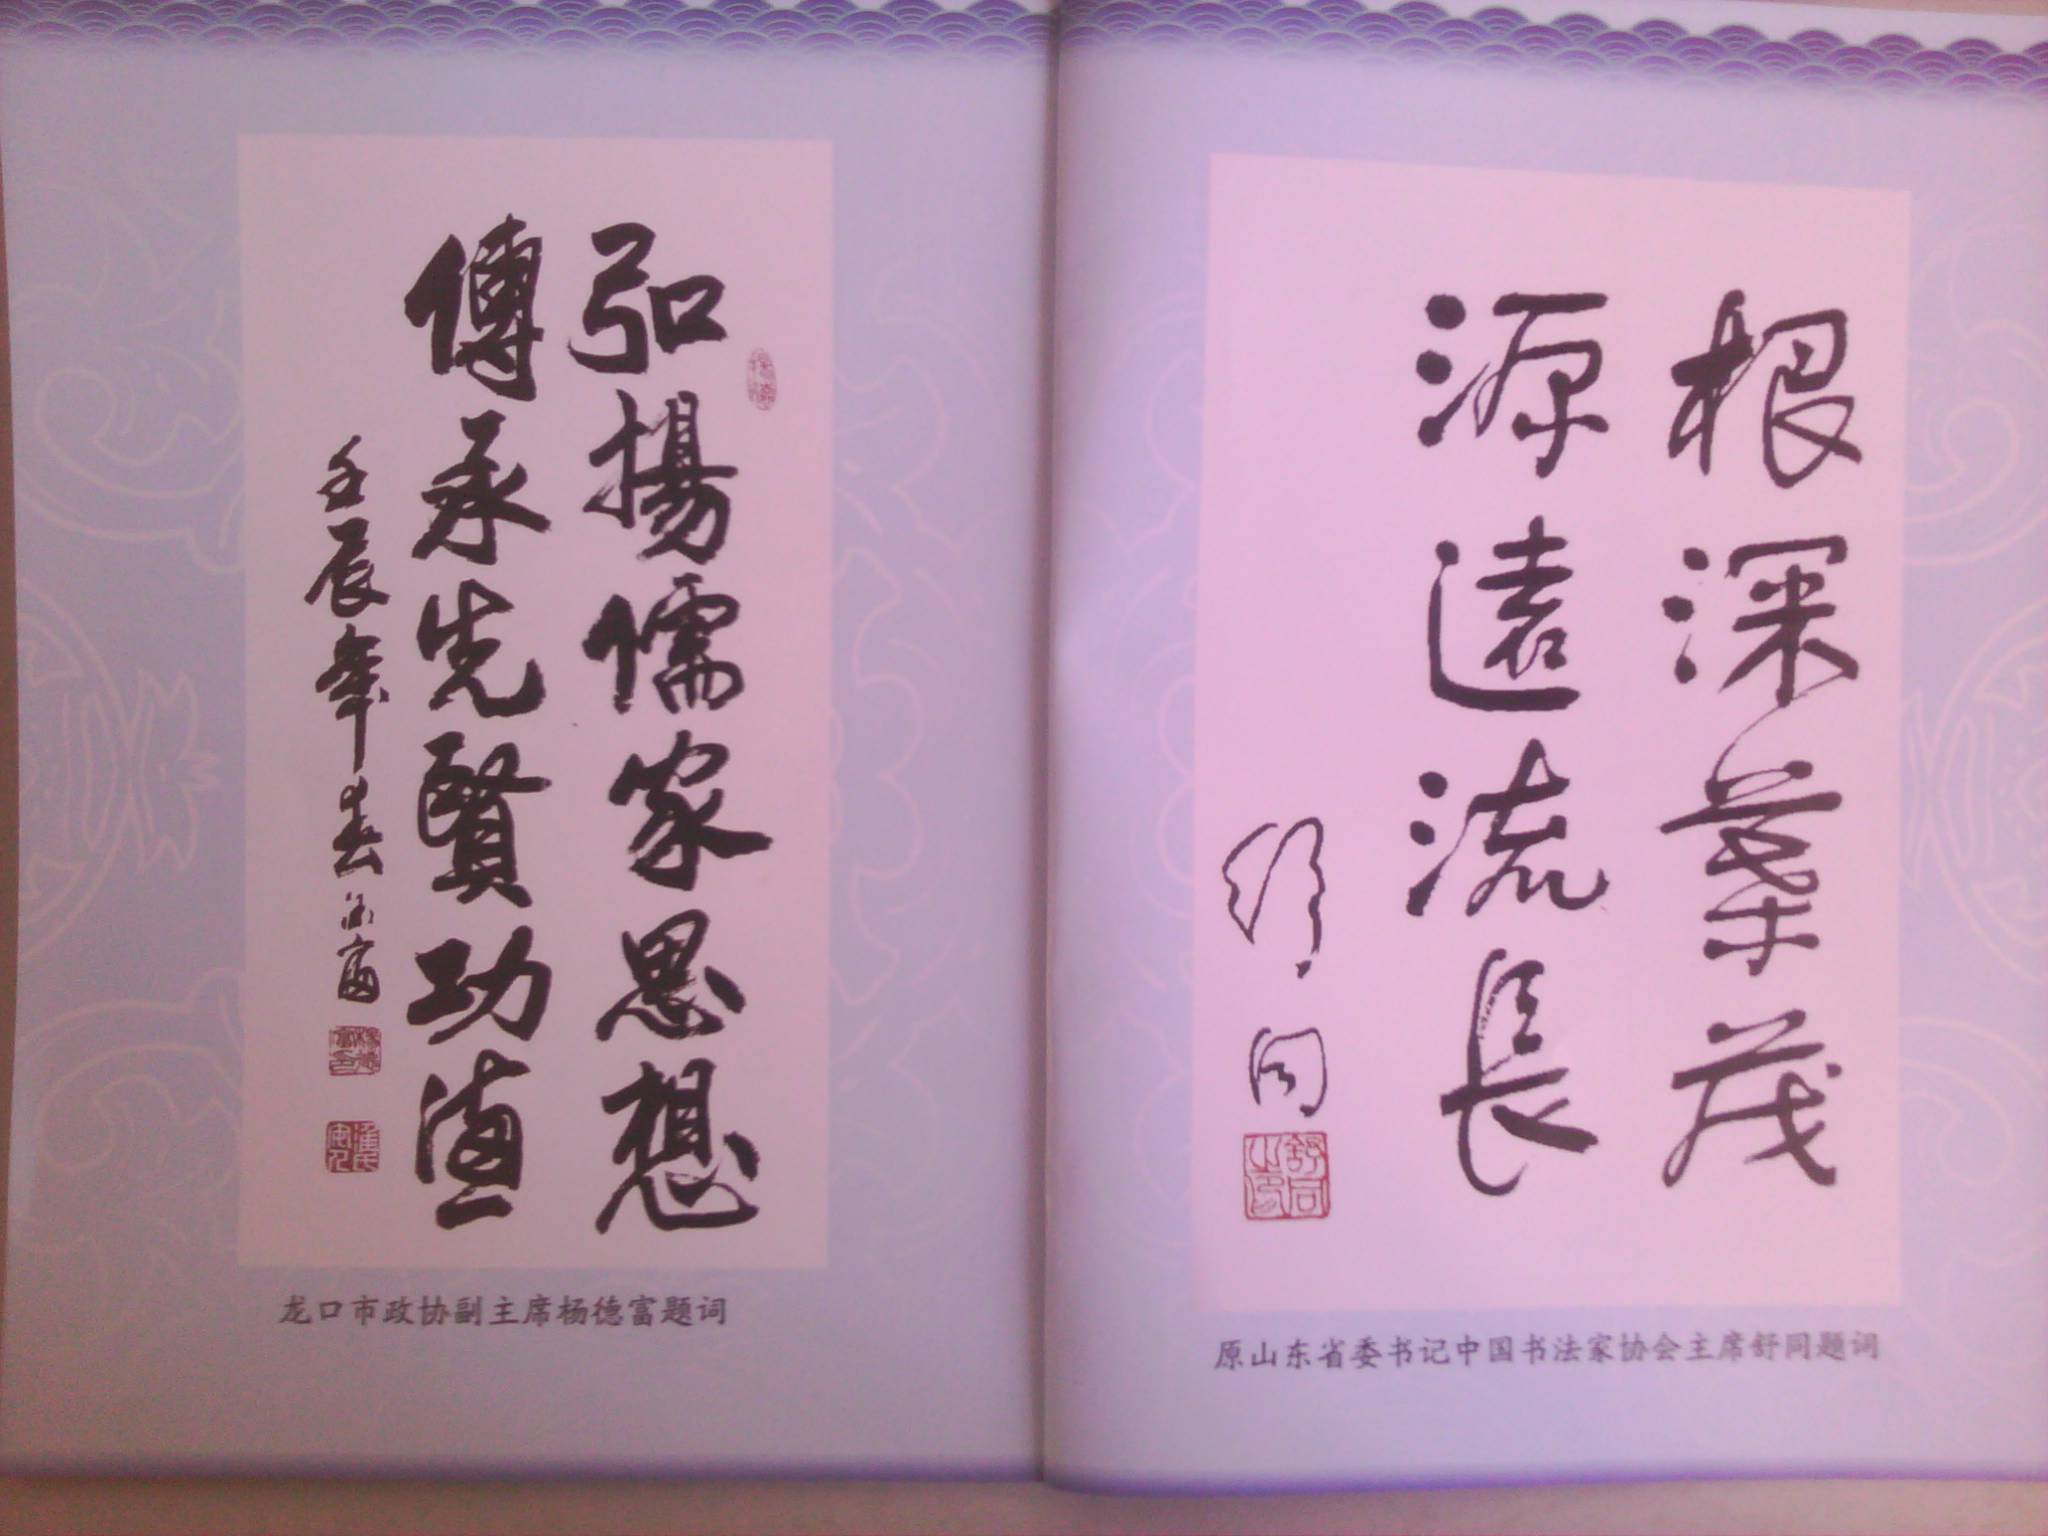 弘揚儒家思想
傳承先賢功德
壬辰年春 德富
龙口市政协副主席杨德富题词
根深葉茂
源遠流長
舒同
舒同之印
原山东省委书记中国书法家协会主席舒同题词